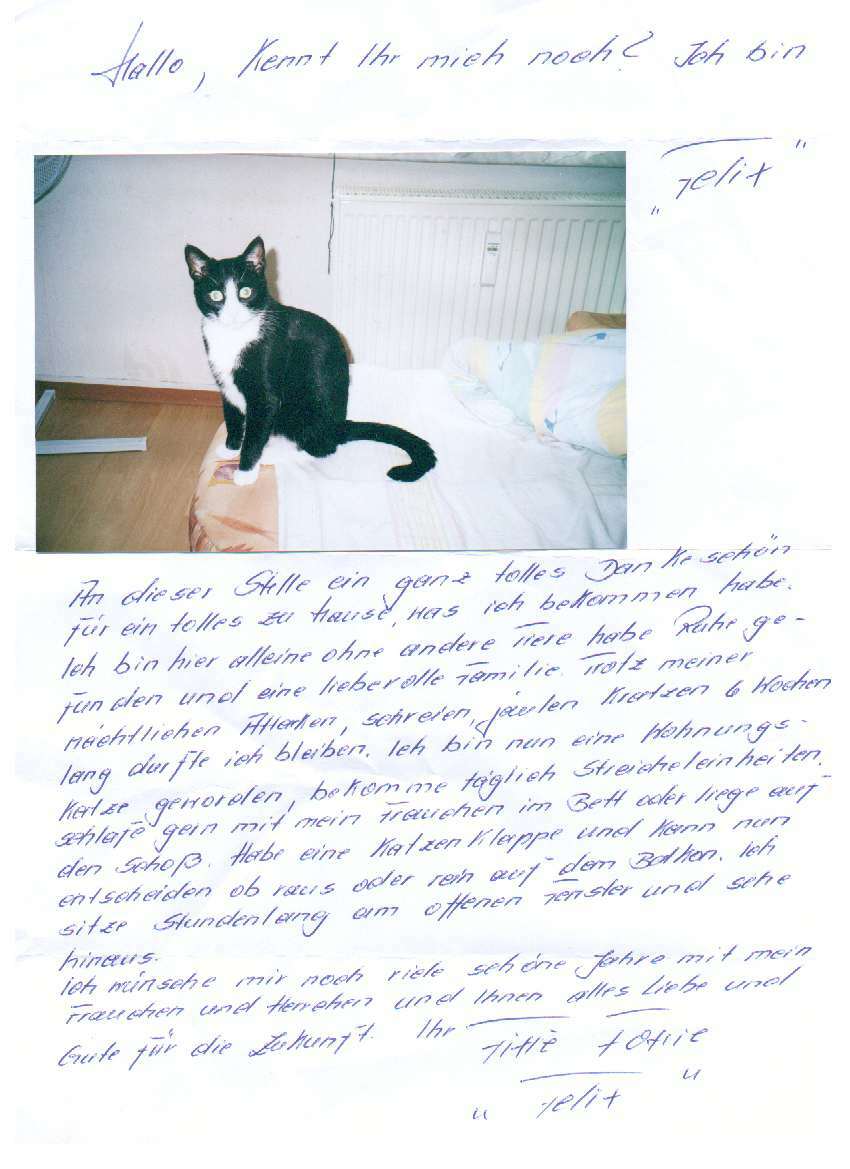 Hallo, Kennt Ihr mich noch? Ich bin
„Felix"
An dieser Stelle ein ganz tolles Dankeschön
für ein tolles zu Hause, was ich bekommen habe.
Ich bin hier alleine ohne andere Tiere habe Ruhe ge-
funden und eine liebevolle Familie. Trotz meiner
nächtlichen Attacken, schreien, jaulen Kratzen 6 Wochen
lang durfte ich bleiben. Ich bin nun eine Wohnungs-
Katze geworden, bekomme täglich Streicheleinheiten,
schlafe gern mit mein Frauchen im Bett oder liege auf
den Schoß. Habe eine Katzenklappe und kann nun
entscheiden ob raus oder rein auf dem Balkon. Ich
sitze Stundenlang am offenen Fenster und sehe
hinaus.
Ich wünsche mir noch viele schöne Jahre mit mein
Frauchen und Herrchen und Ihnen alles Liebe und
Gute für die Zukunft. Ihr
"Felix"